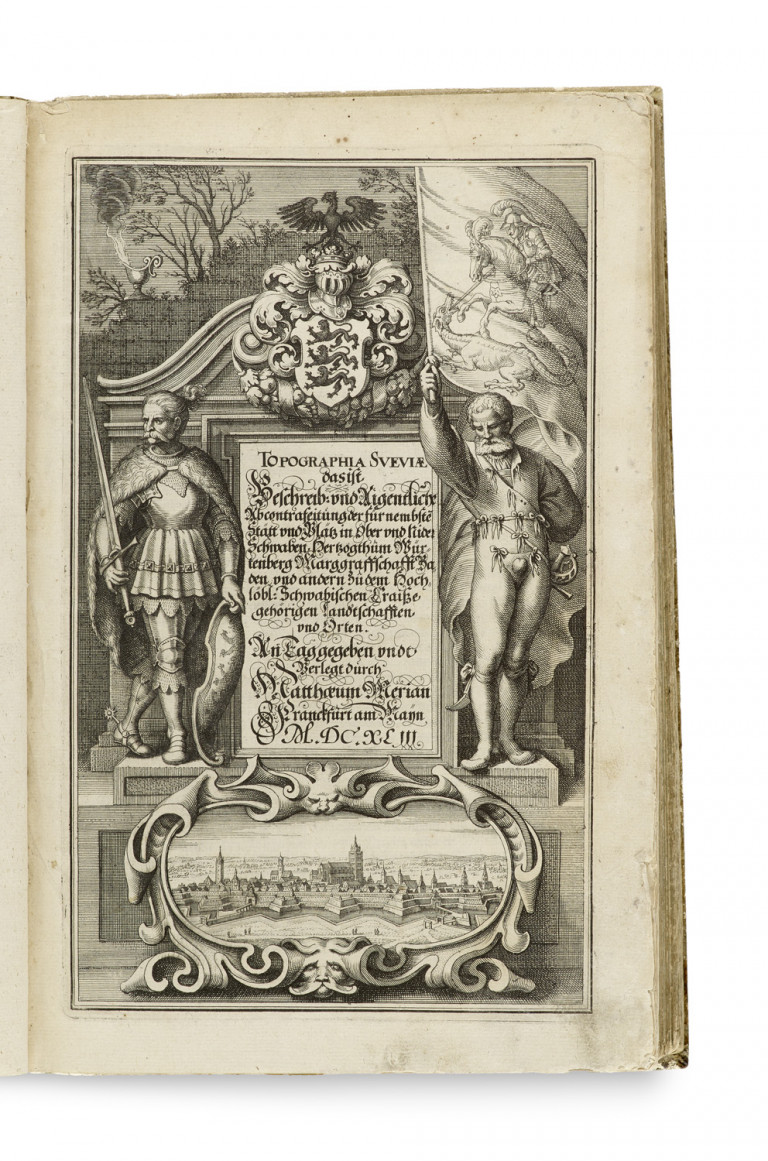 TOPOGRAPHIA SVEVIÆ
das ist
Beschreib: vnd Aigentliche
Abcontrafeitung der fürnembstē
Stätt vnd Plätz in Ober vnd Nider
Schwaben, Hertzogthum Wür-
tenberg Marggraffschafft Ba
den, vnd andern zu dem Hoch
löbl: Schwabischen Craiße
gehörigen Landtschafften
vnd Orten.
An Tag gegeben vndt
Verlegt durch
Matthæum Merian
Franckfurt am Mayn
M.DC.XLIII.